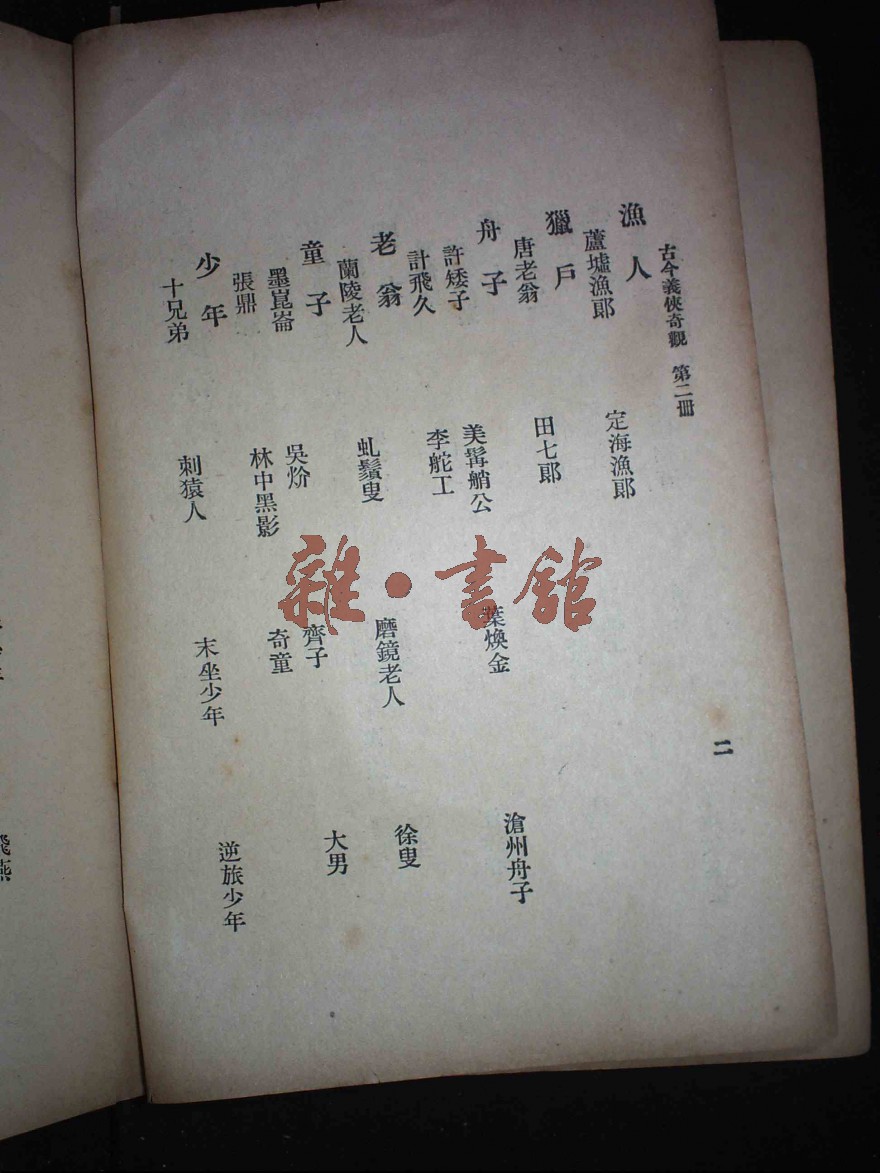 古今義俠奇觀　第二冊
二
漁人
蘆墟漁郎　定海漁郎
獵戶
唐老翁　田七郎
舟子
許矮子　美髯艄公　葉煥金　滄州舟子
計飛久　李舵工
老翁
蘭陵老人　虬鬚叟　磨鏡老人　徐叟
童子
墨崑崙　吳炌　齊子　大男
張鼎　林中黑影　奇童
少年
十兄弟　刺猿人　末坐少年　逆旅少年
雜·書館
飛燕